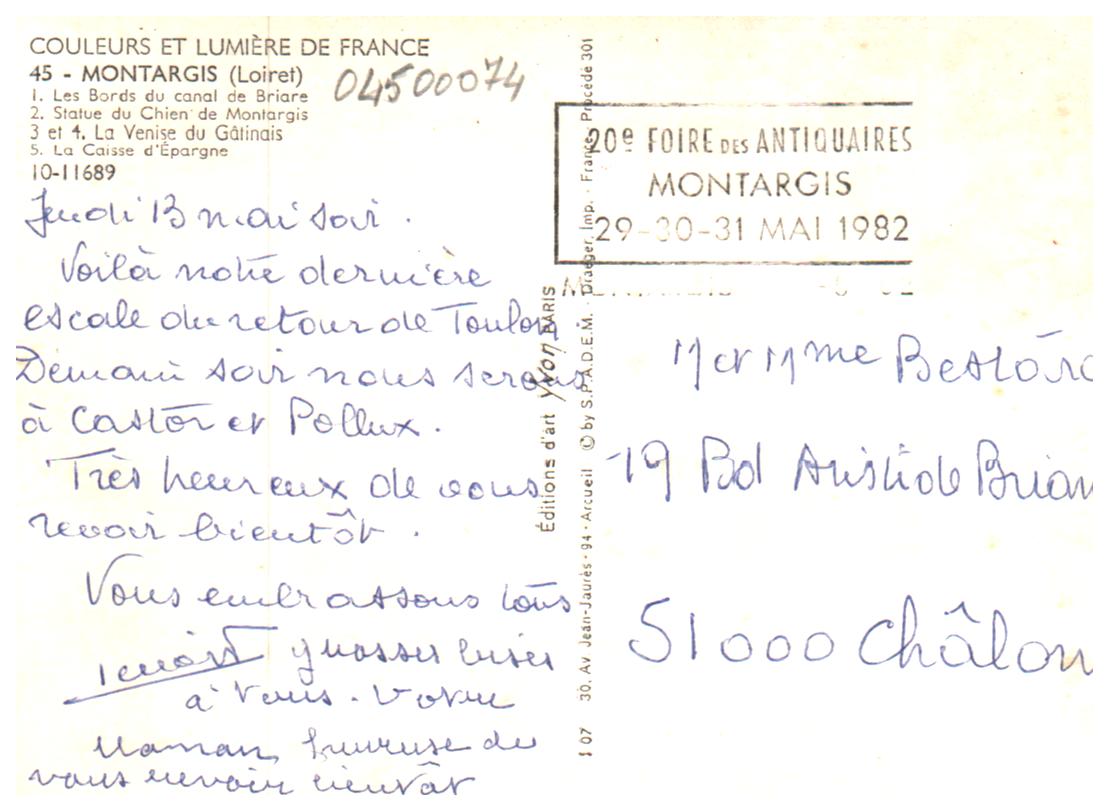 COULEURS ET LUMIÈRE DE FRANCE
45 - MONTARGIS (Loiret)
04500074
1. Les Bords du canal de Briare
2. Statue du Chien de Montargis
3 et 4. La Venise du Gâtinais
5. La Caisse d'Épargne
10-11689
Jeudi 13 mai soir.
Voilà notre dernière
escale du retour de Toulon.
Demain soir nous serons
à Castor et Pollux.
Très heureux de vous
revoir bientôt.
Vous embrassons tous
grosses bises
à vous. Votre
maman heureuse de
vous revoir bientôt
Éditions d'art Yvon PARIS
107 30, Av Jean-Jaurès - 94 - Arcueil © by S.P.A.D.E.M. - Draeger, Imp. - France, Procédé 301
20e FOIRE DES ANTIQUAIRES
MONTARGIS
29-30-31 MAI 1982
M et Mme Bestóro
19 Bd Aristide Brian
51000 Châlon